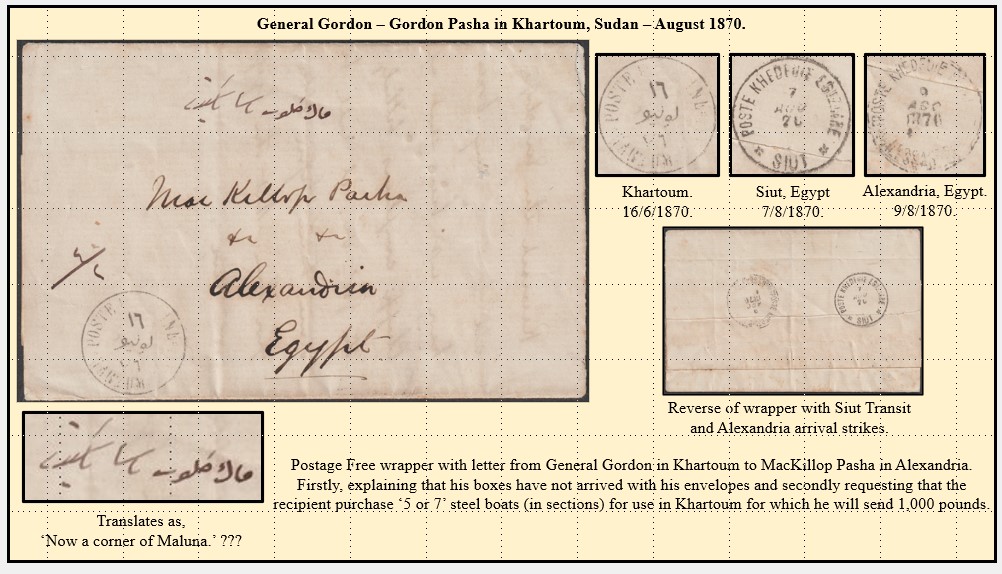 General Gordon – Gordon Pasha in Khartoum, Sudan – August 1870.
Mac Killop Pasha
Alexandria
Egypt
POSTE NE
١٦
يونيو
Khartoum.
16/6/1870.
POSTE KHEDEUIE EGIZIANE
7
AGO
70
SIUT
Siut, Egypt
7/8/1870.
POSTE KHEDEUIE
9
AGO
1870
Alexandria, Egypt.
9/8/1870.
Reverse of wrapper with Siut Transit
and Alexandria arrival strikes.
Translates as,
‘Now a corner of Maluna.’ ???
Postage Free wrapper with letter from General Gordon in Khartoum to MacKillop Pasha in Alexandria.
Firstly, explaining that his boxes have not arrived with his envelopes and secondly requesting that the
recipient purchase ‘5 or 7’ steel boats (in sections) for use in Khartoum for which he will send 1,000 pounds.